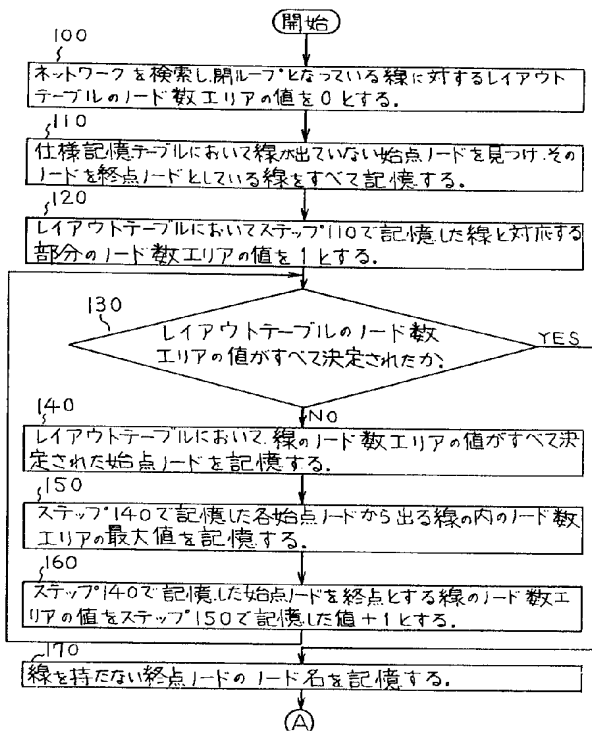 開始
100
ネットワークを検索し、閉ループとなっている線に対するレイアウト
テーブルのノード数エリアの値を0とする.
110
仕様記憶テーブルにおいて線が出ていない始点ノードを見つけ、その
ノードを終点ノードとしている線をすべて記憶する.
120
レイアウトテーブルにおいてステップ110で記憶した線と対応する
部分のノード数エリアの値を1とする.
130
レイアウトテーブルのノード数
エリアの値がすべて決定されたか.
YES
NO
140
レイアウトテーブルにおいて、線のノード数エリアの値がすべて決
定された始点ノードを記憶する.
150
ステップ140で記憶した各始点ノードから出る線の内のノード数
エリアの最大値を記憶する.
160
ステップ140で記憶した始点ノードを終点とする線のノード数エリ
アの値をステップ150で記憶した値+1とする.
170
線を持たない終点ノードのノード名を記憶する.
A